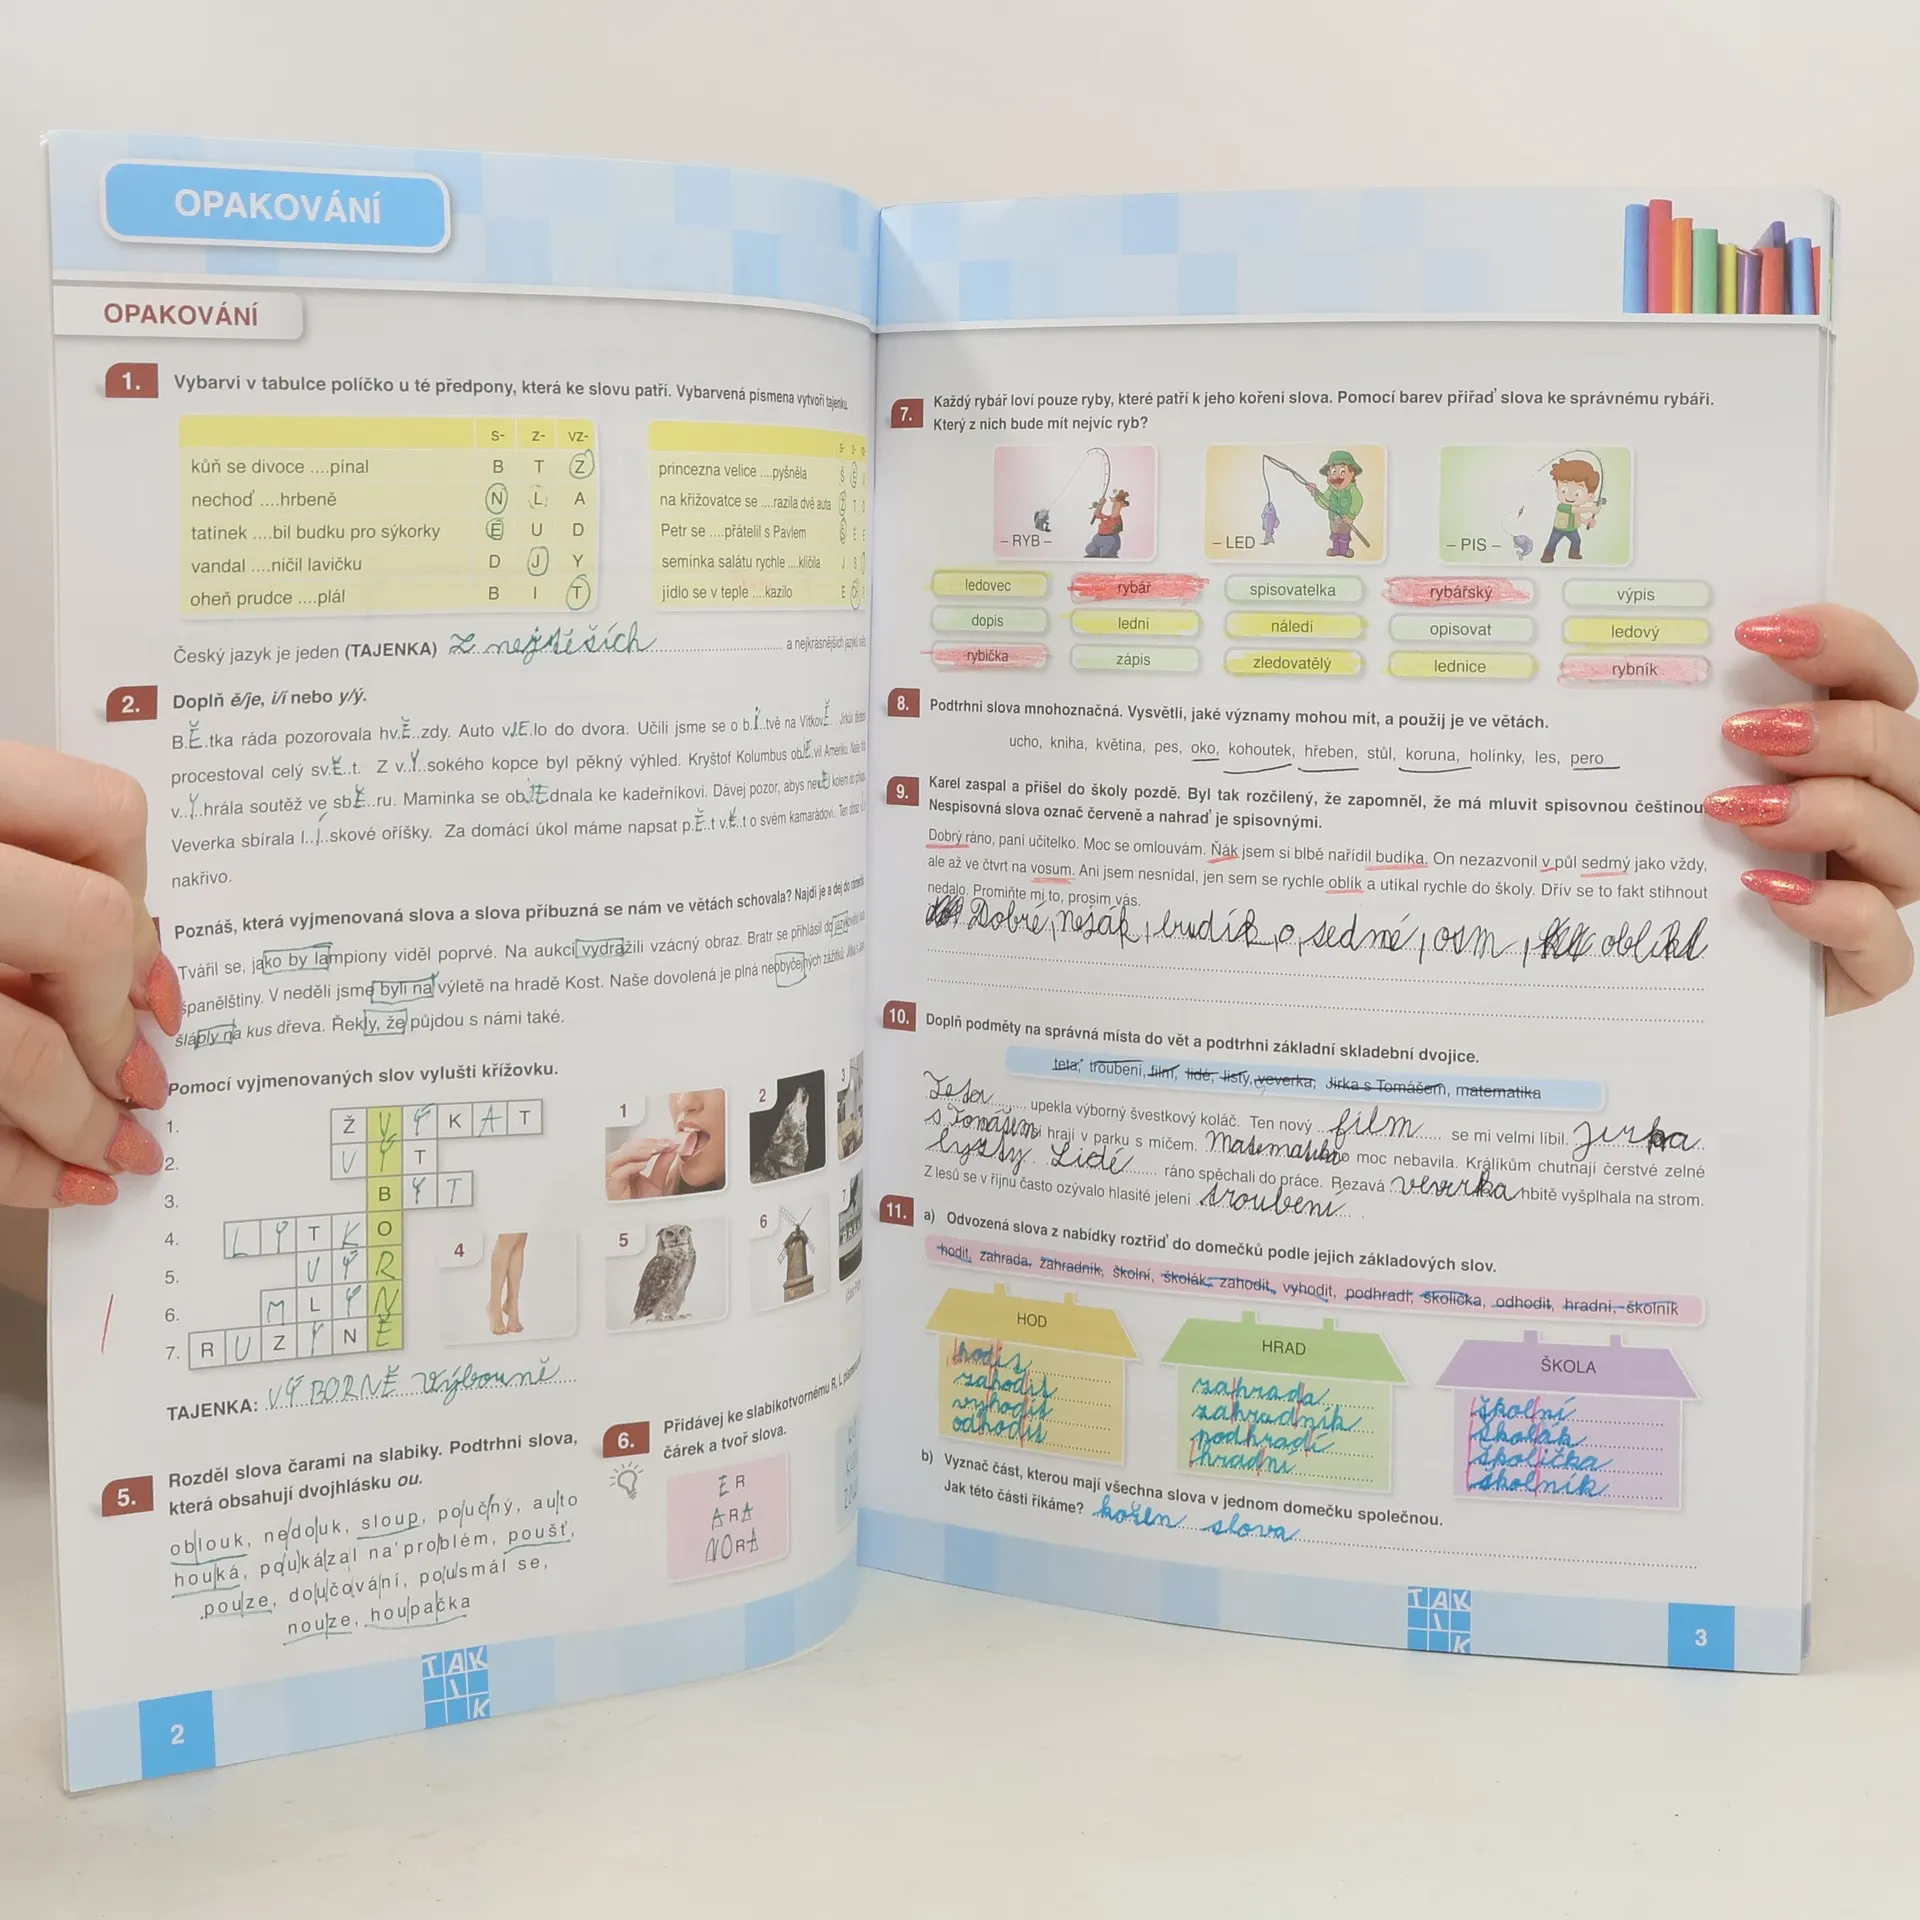 OPAKOVÁNÍ
OPAKOVÁNÍ
1. Vybarvi v tabulce políčko u té předpony, která ke slovu patří. Vybarvená písmena vytvoří tajenku.
s- z- vz-
kůň se divoce ....pínal B T Z
nechoď ....hrbeně N L A
tatínek ....bil budku pro sýkorky E U D
vandal ....ničil lavičku D J Y
oheň prudce ....plál B I T
princezna velice ....pyšněla
na křižovatce se ....razila dvě auta
Petr se ....přátelil s Pavlem
semínka salátu rychle ....klíčila
jídlo se v teple ....kazilo
Český jazyk je jeden (TAJENKA) z nejtěších a nejkrásnějších jazyků
2. Doplň ě/je, i/í nebo y/ý.
B.Ě.tka ráda pozorovala hv.Ě..zdy. Auto v.JE.lo do dvora. Učili jsme se o b.Í.tvě na Vítkov.Ě.
procestoval celý sv.Ě..t. Z v..Y..sokého kopce byl pěkný výhled. Kryštof Kolumbus ob.JE.vil Ameriku.
v..Y..hrála soutěž ve sb.Ě..ru. Maminka se ob.JE.dnala ke kadeřníkovi. Dávej pozor, abys
Veverka sbírala l..Í..skové oříšky. Za domácí úkol máme napsat p.Ě..t v.Ě..t o svém kamarádovi.
nakřivo.
Poznáš, která vyjmenovaná slova a slova příbuzná se nám ve větách schovala? Najdi je a dej do
Tvářil se, jako by lampiony viděl poprvé. Na aukci vydražili vzácný obraz. Bratr se přihlásil do
španělštiny. V neděli jsme byli na výletě na hradě Kost. Naše dovolená je plná neobyčejných zážitků.
šláply na kus dřeva. Řekly, že půjdou s námi také.
Pomocí vyjmenovaných slov vylušti křížovku.
1. Ž V Ý K A T
2. V Ý T
3. B Ý T
4. L Ý T K O
5. V Ý R
6. M L Ý N
7. R U Z Y N Ě
1
2
3
4
5
6
7
TAJENKA: VÝBORNĚ Výborně
5. Rozděl slova čarami na slabiky. Podtrhni slova,
která obsahují dvojhlásku ou.
oblouk, nedouk, sloup, poučný, auto
houká, poukázal na problém, poušť,
pouze, doučování, pousmál se,
nouze, houpačka
6. Přidávej ke slabikotvornému R, L
čárek a tvoř slova.
ER
ARA
NORA
TAKTIK
2
7. Každý rybář loví pouze ryby, které patří k jeho kořeni slova. Pomocí barev přiřaď slova ke správnému rybáři.
Který z nich bude mít nejvíc ryb?
– RYB – – LED – – PIS –
ledovec rybář spisovatelka rybářský výpis
dopis lední náledí opisovat ledový
rybička zápis zledovatělý lednice rybník
8. Podtrhni slova mnohoznačná. Vysvětli, jaké významy mohou mít, a použij je ve větách.
ucho, kniha, květina, pes, oko, kohoutek, hřeben, stůl, koruna, holínky, les, pero
9. Karel zaspal a přišel do školy pozdě. Byl tak rozčilený, že zapomněl, že má mluvit spisovnou češtinou.
Nespisovná slova označ červeně a nahraď je spisovnými.
Dobrý ráno, paní učitelko. Moc se omlouvám. Ňák jsem si blbě nařídil budíka. On nezazvonil v půl sedmý jako vždy,
ale až ve čtvrt na vosum. Ani jsem nesnídal, jen sem se rychle oblík a utíkal rychle do školy. Dřív se to fakt stihnout
nedalo. Promiňte mi to, prosim vás.
Dobré, nesák, budík, o, sedmé, osm, oblíkl
10. Doplň podměty na správná místa do vět a podtrhni základní skladební dvojice.
teta, troubení, film, lidé, listy, veverka, Jirka s Tomášem, matematika
Teta upekla výborný švestkový koláč. Ten nový film se mi velmi líbil. Jirka
s Tomášem si hrají v parku s míčem. Matematika ho moc nebavila. Králíkům chutnají čerstvé zelné
lysty. Lidé ráno spěchali do práce. Rezavá veverka hbitě vyšplhala na strom.
Z lesů se v říjnu často ozývalo hlasité jelení troubení.
11. a) Odvozená slova z nabídky roztřiď do domečků podle jejich základových slov.
hodit, zahrada, zahradník, školní, školák, zahodit, vyhodit, podhradí, školička, odhodit, hradní, školník
HOD HRAD ŠKOLA
hodit zahrada školní
zahodit zahradník školák
vyhodit podhradí školička
odhodit hradní školník
b) Vyznač část, kterou mají všechna slova v jednom domečku společnou.
Jak této části říkáme? kořen slova
TAKTIK
3